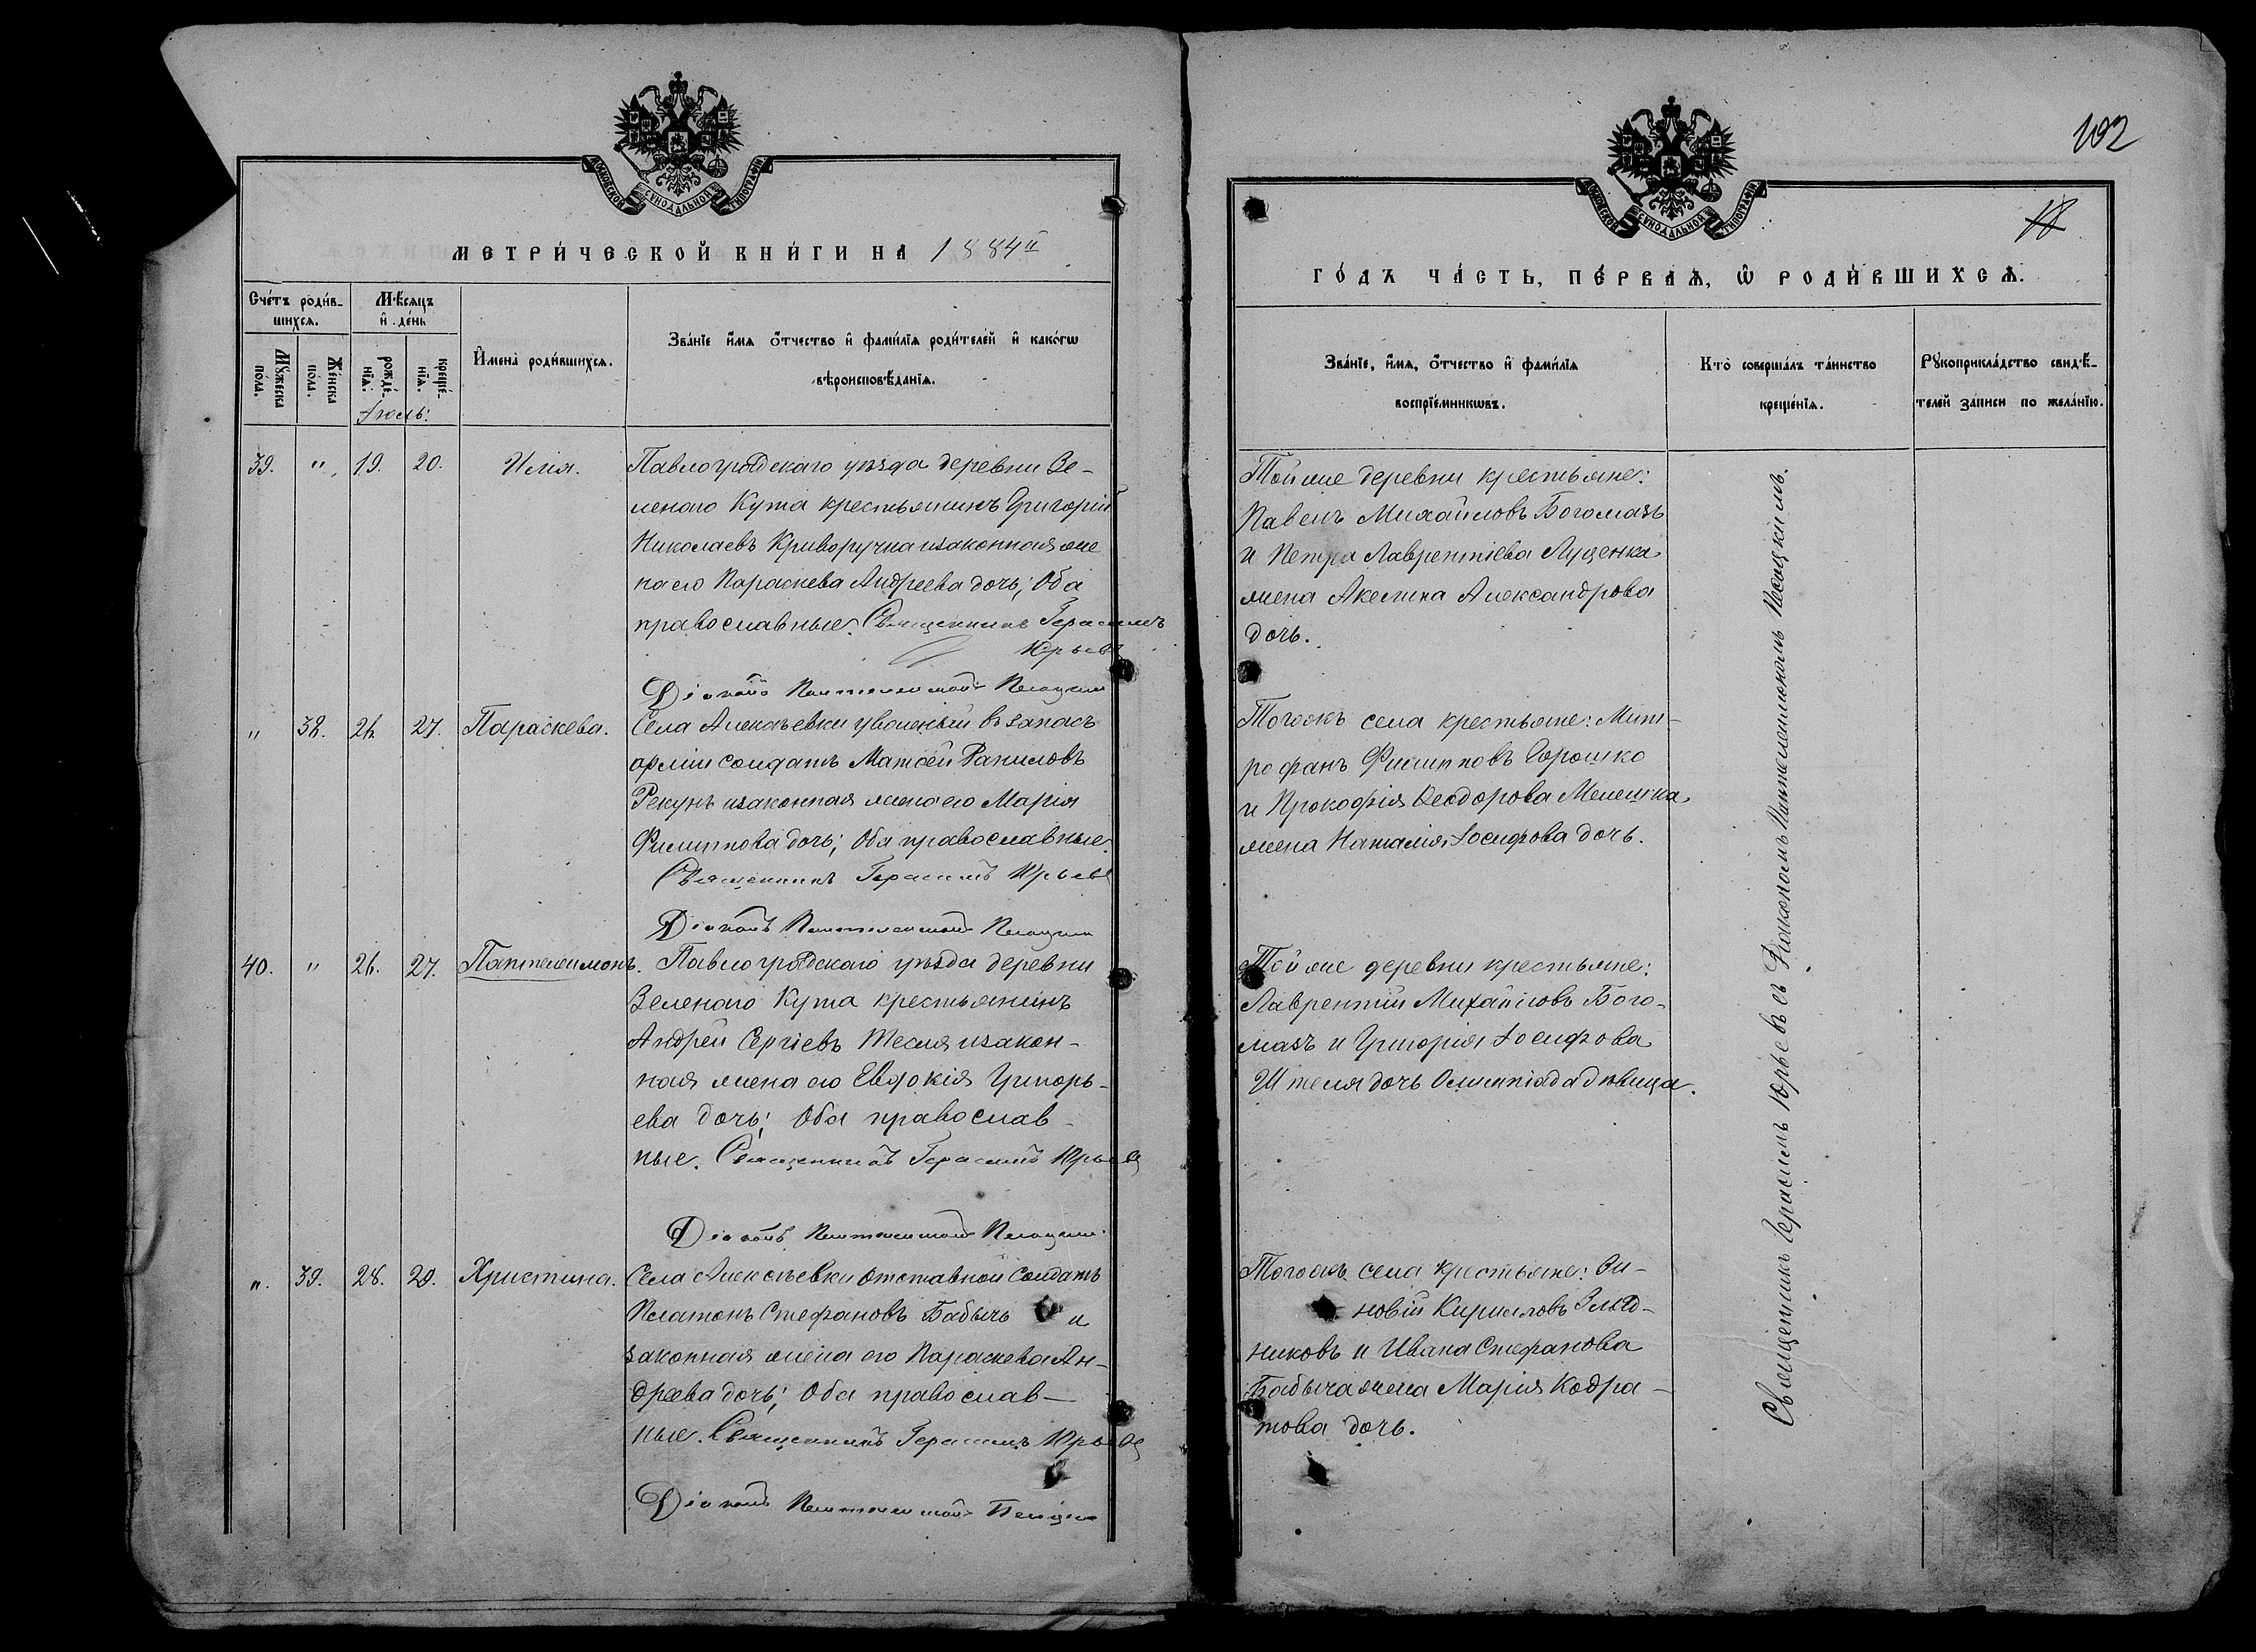 МОСКОВСКОЙ СѴНОДАЛЬНОЙ ТИПОГРАФІИ
МЕТРИ́ЧЕСКОЙ КНИ́ГИ НА 1884й
Счéтъ роди́в-
шихсѧ.
Мꙋ́жеска
пóла.
Жéнска
пóла.
Мѣ́сѧцъ
и҆ дéнь
рождé-
нїѧ.
крещé-
нїѧ.
Іюль:
И҆менà роди́вшихсѧ.
Звáнїе и҆́мѧ ѻ҆́тчество и҆ фамѝлїѧ роди́телей и҆ какóгѡ
вѣроисповѣ́данїѧ.
39. " 19. 20. Илія.
Павлоградскаго уѣзда деревни Зе-
ленаго Кута крестьянинъ Григорій
Николаевъ Криворучка изаконная же
на его Параскева Андреева дочь; Оба
православные. Священникъ Герасимъ
Юрьевъ
Діаконъ Пантелеимонъ Песоцкій
" 38. 26. 27. Параскева.
Села Алексѣевки уволеный въ запасъ
арміи солдатъ Матѳей Даниловъ
Рекунъ изаконная жена его Марія
Филиппова дочь; Оба православные.
Священникъ Герасимъ Юрьевъ
Діаконъ Пантелеимонъ Песоцкій
40. " 26. 27. Пантелеимонъ.
Павлоградскаго уѣзда деревни
Зеленаго Кута крестьянинъ
Андрей Сергіевъ Тесля изакон-
ная жена его Евдокія Григорь-
ева дочь; Оба православ-
ные. Священникъ Герасимъ Юрьевъ
Діаконъ Пантелеимонъ Песоцкій
". 39. 28. 29. Христина.
Села Алексѣевки отставной солдатъ
Платонъ Стефановъ Бабычъ и
законная жена его Параскева Ан-
дреева дочь; Оба православ-
ные. Священникъ Герасимъ Юрьевъ
Діаконъ Пантелеимонъ Песоцкій
102
18
МОСКОВСКОЙ СѴНОДАЛЬНОЙ ТИПОГРАФІИ
ГО́ДЪ ЧА́СТЬ, ПЕ́РВАѦ, Ѽ РОДИ́ВШИХСѦ.
Звáнїе, и҆́мѧ, ѻ҆́тчество и҆ фамѝлїѧ
воспрїéмникѡвъ.
Ктò совершáлъ тáинство
крещéнїѧ.
Рꙋкоприклáдство свидѣ́-
телей зáписи по желáнїю.
Той же деревни крестьяне:
Павелъ Михайловъ Богомазъ
и Петра Лаврентіева Луценка
жена Акелина Александрова
дочь.
Тогожъ села крестьяне: Мит-
рофанъ Филипповъ Горошко
и Прокофія Ѳеодорова Мелешка
жена Наталія Іосифова дочь.
Той же деревни крестьяне:
Лаврентій Михайловъ Бого-
мазъ и Григорія Іосифова
Штеля дочь Олимпіада дѣвица.
Тогожъ села крестьяне: Зи-
новій Кириловъ
никовъ и Ивана Стефанова
Бабыча жена Марія Кодра-
това дочь.
Священникъ Герасимъ Юрьевъ съ Діакономъ Пантелеимономъ Песоцкимъ.